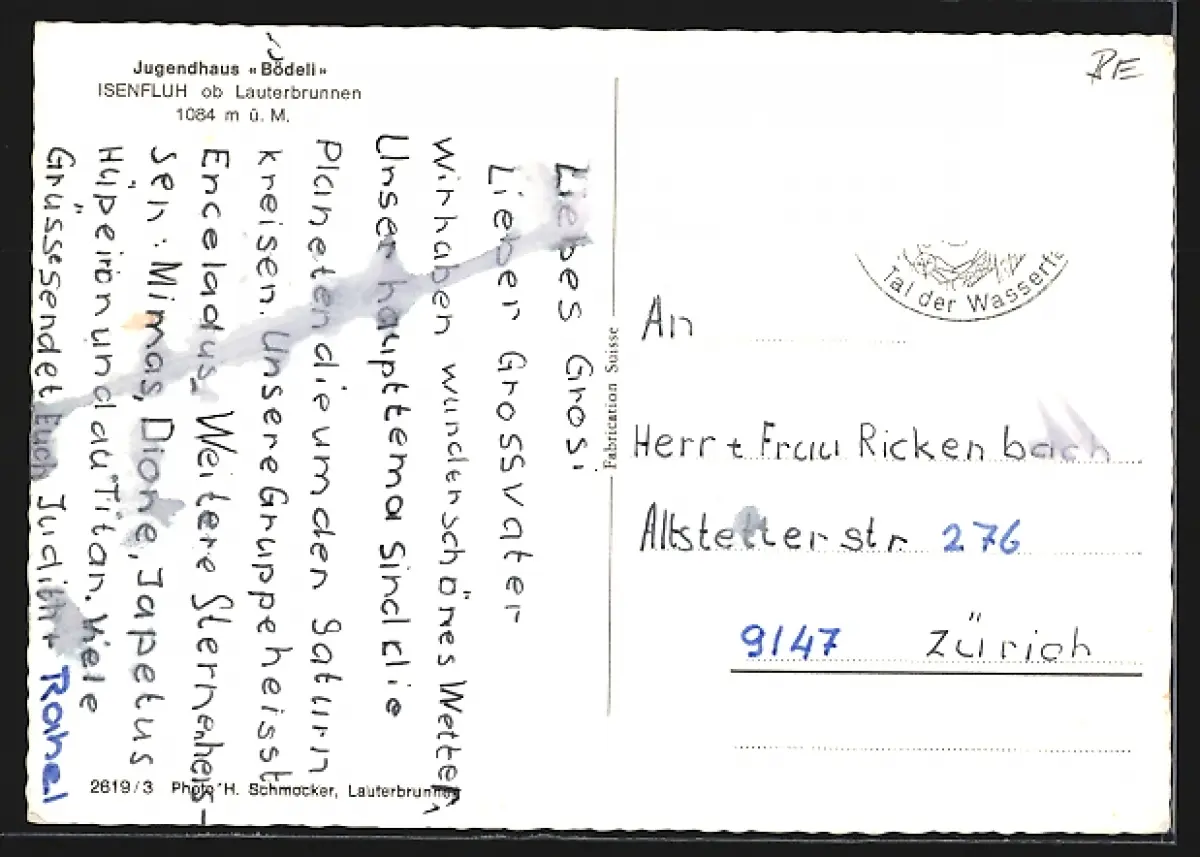 Jugendhaus «Bödeli»
ISENFLUH ob Lauterbrunnen
1084 m ü. M.
Liebes Grosi
Lieber Grossvater
Wir haben wunderschönes Wetter
Unser haupttema Sind die
Planeten die um den Saturn
kreisen. Unsere Gruppe heisst
Enceladus. Weitere Sternenheis-
sen: Mimas, Dione, Japetus
Hüpeiron und au Titan. Viele
Grüsse sendet Euch Judith + Rahel
2619/3 Photo H. Schmocker, Lauterbrunnen
Fabrication Suisse
BE
Tal der Wasserf
An
Herr + Frau Rickenbach
Altstetterstr. 276
9147 Zürich